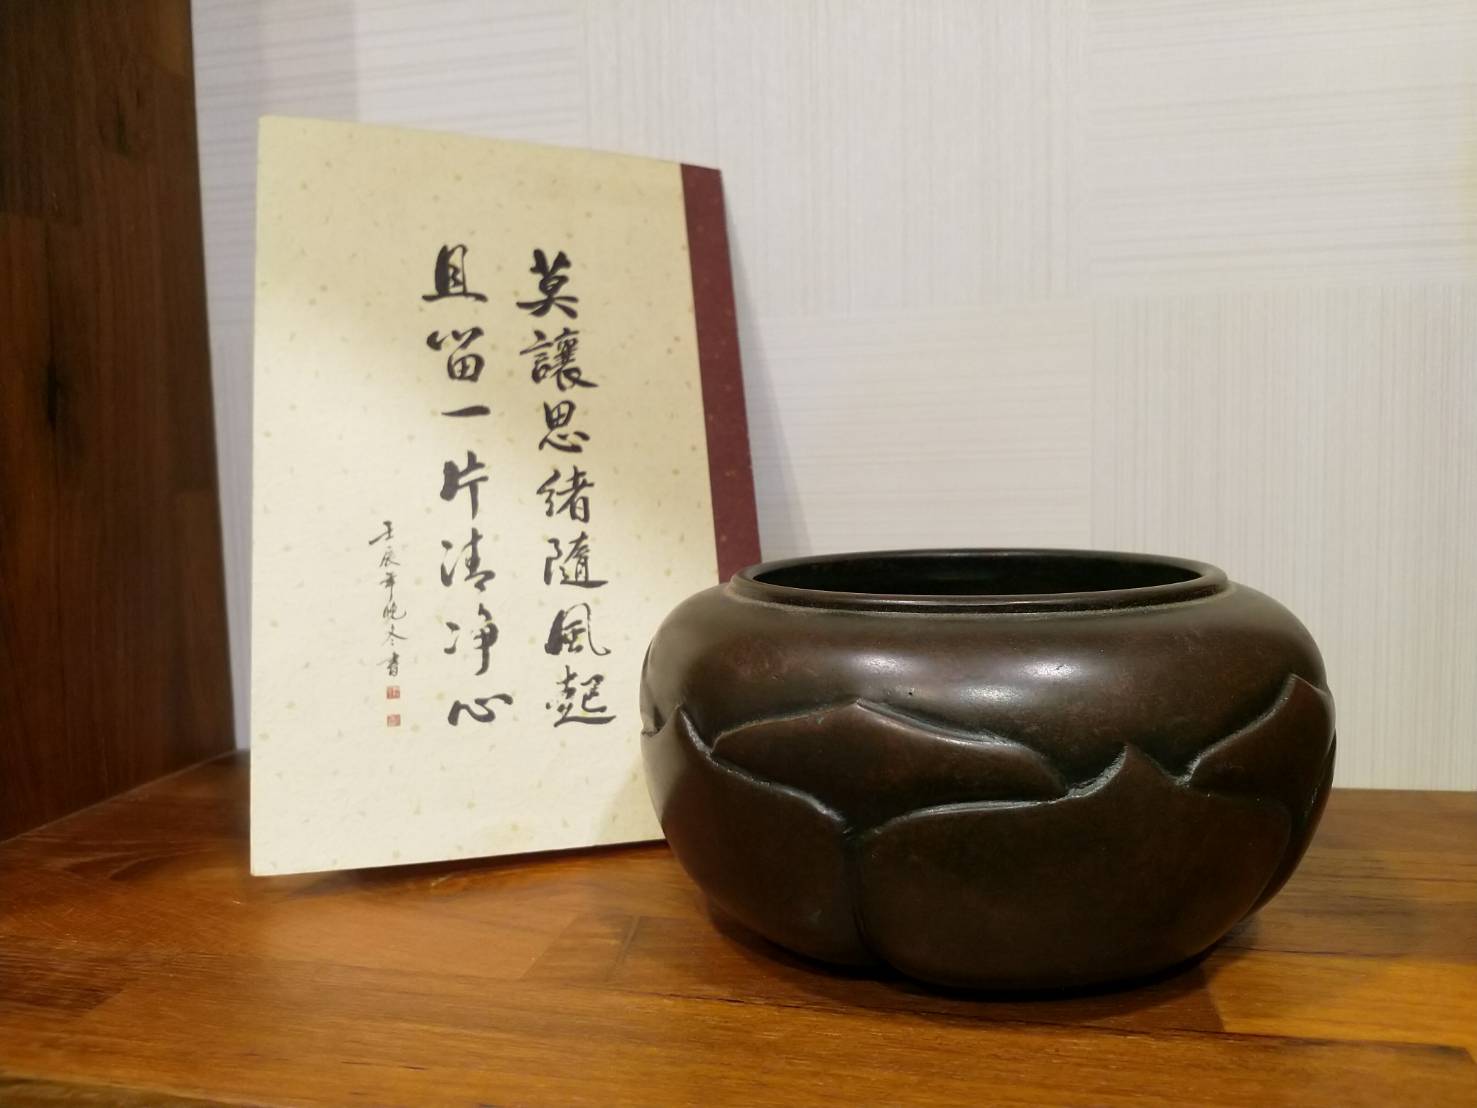 莫讓思緒隨風起
且留一片清淨心
壬辰年晚冬書